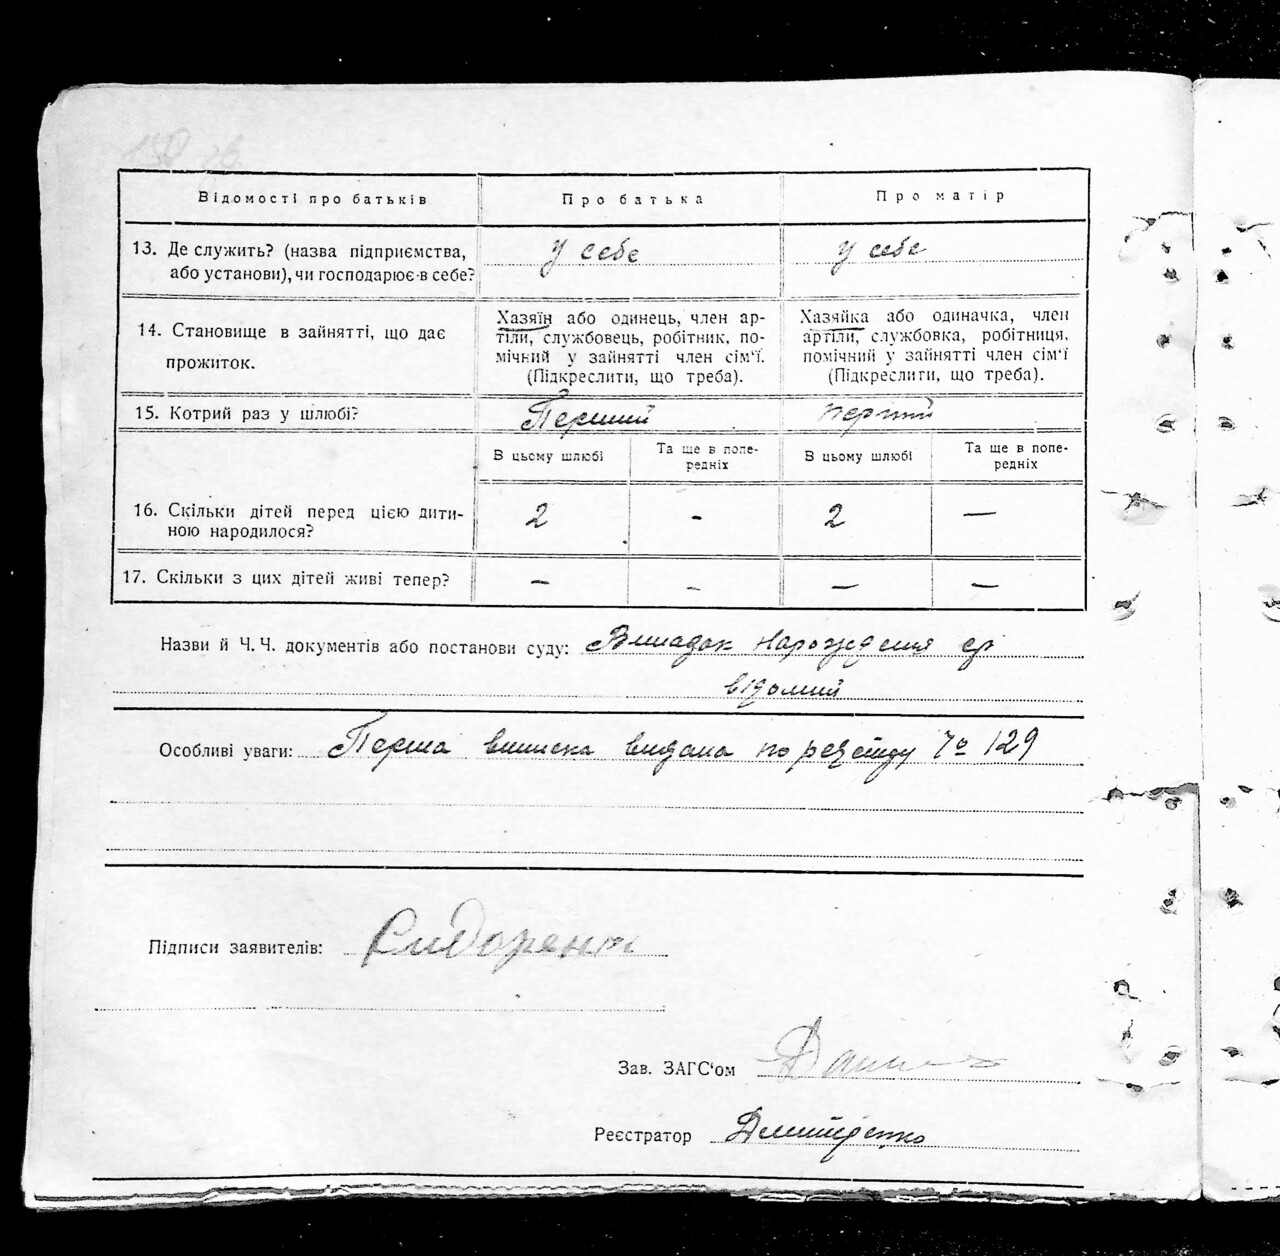 Відомості про батьків
Про батька
Про матір
13. Де служить? (назва підприємства,
або установи), чи господарює в себе?
у себе
у себе
14. Становище в зайнятті, що дає
прожиток.
Хазяїн або одинець, член ар-
тіли, службовець, робітник, по-
мічний у зайнятті член сім'ї.
(Підкреслити, що треба).
Хазяйка або одиначка, член
артіли, службовка, робітниця,
помічний у зайнятті член сім'ї
(Підкреслити, що треба).
15. Котрий раз у шлюбі?
Перший
перший
В цьому шлюбі
Та ще в попе-
редніх
В цьому шлюбі
Та ще в попе-
редніх
16. Скільки дітей перед цією дити-
ною народилося?
2 - 2 —
17. Скільки з цих дітей живі тепер?
— — — —
Назви й Ч. Ч. документів або постанови суду: Випадок народження
відомий
Особливі уваги: Перша виписка видана по реєстру № 129
Підписи заявителів: Сидоренко
Зав. ЗАГС'ом
Реєстратор Дмитренко